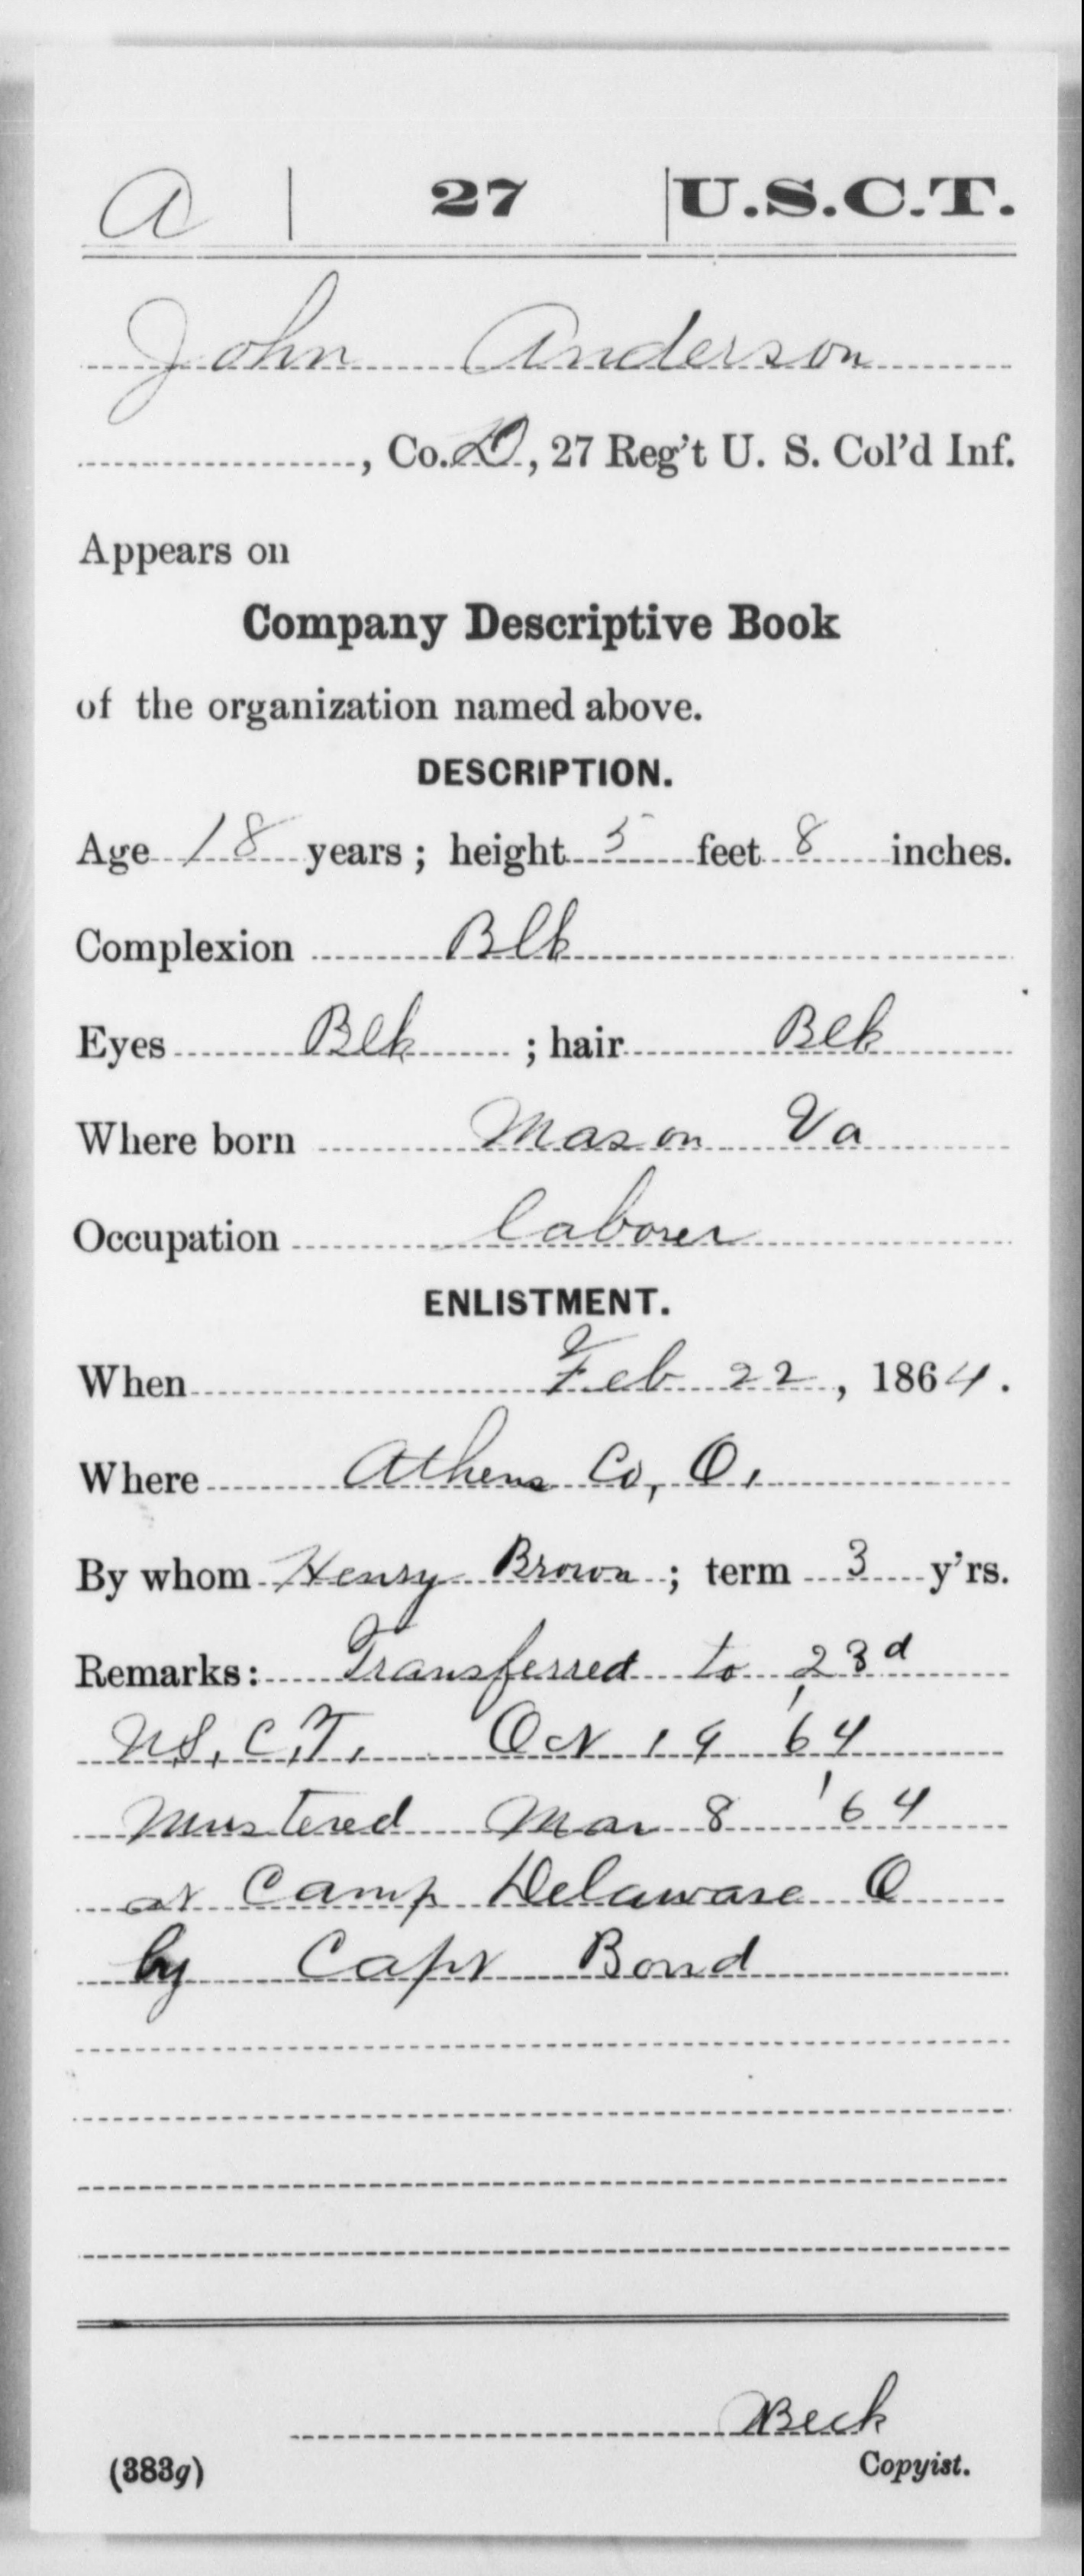 A | 27 | U.S.C.T.
John Anderson
, Co. D, 27 Reg't U. S. Col'd Inf.
Appears on
Company Descriptive Book
of the organization named above.
DESCRIPTION.
Age 18 years; height 5 feet 8 inches.
Complexion Blk
Eyes Blk ; hair Blk
Where born Mason Va
Occupation laborer
ENLISTMENT.
When Feb 22, 1864.
Where Athens Co, O,
By whom Henry Brown; term 3 y'rs.
Remarks: Transferred to 23d
U.S.C.T. Oct 19 '64
Mustered Mar 8 '64
at Camp Delaware O
by Capt Bond
Beck
(383g) Copyist.